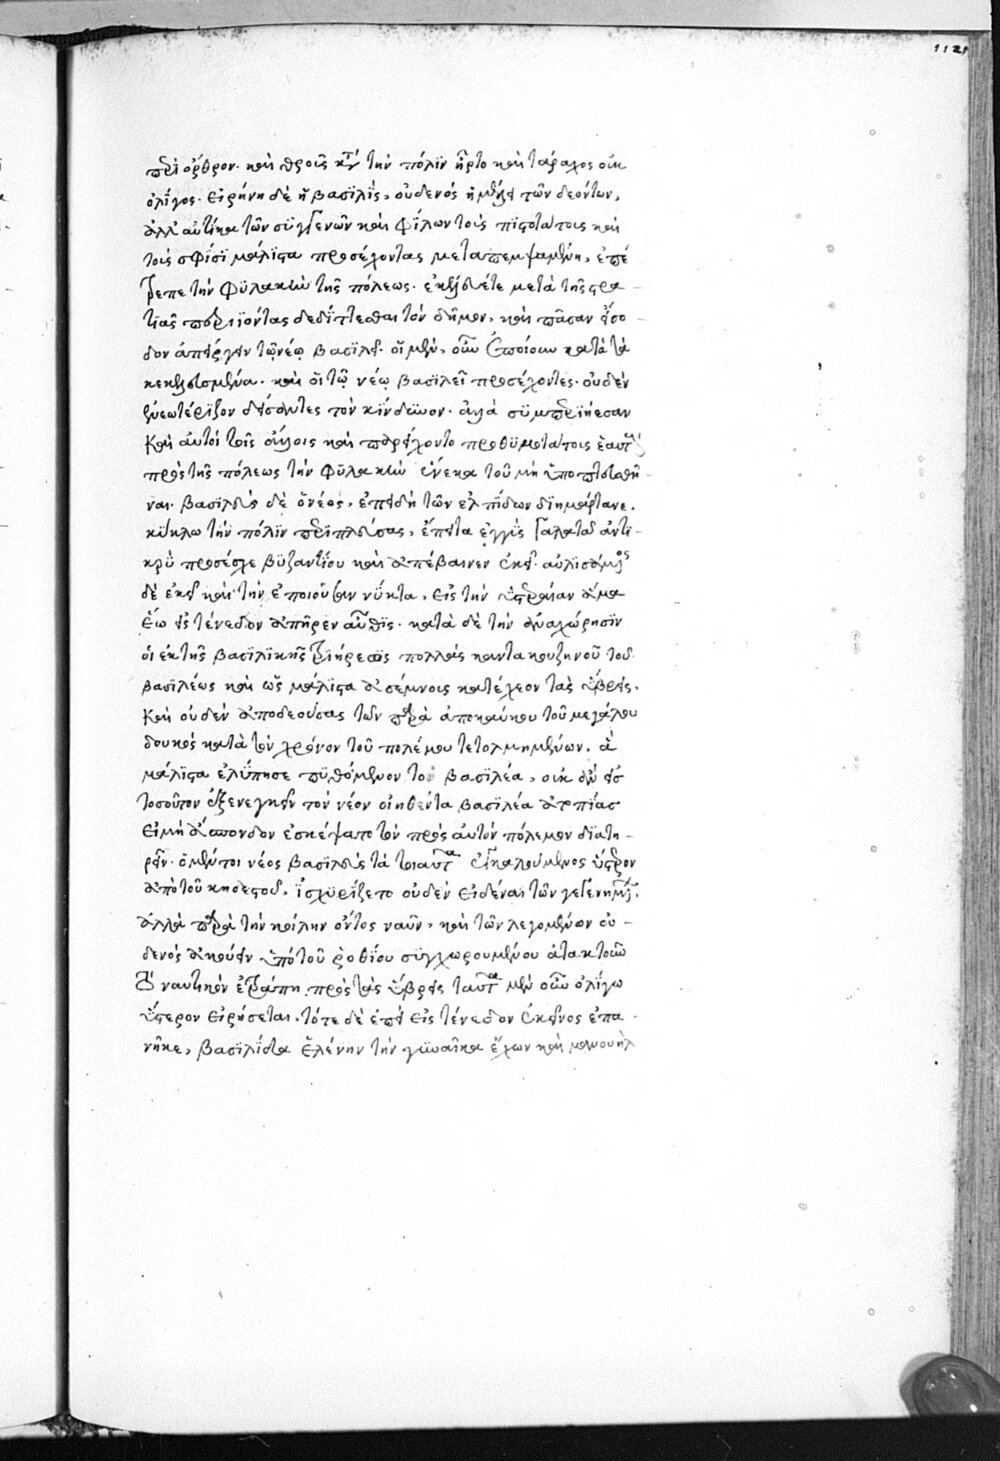 1121
περὶ ὄρθρον. καὶ θροῦς κατὰ τὴν πόλιν ἦρτο καὶ τάραχος οὐκ
ὀλίγος. εἰρήνη δὲ ἡ βασιλὶς, οὐδενὸς ἠμέλει τῶν δεόντων,
ἀλλ' αὐτίκα τῶν συγγενῶν καὶ φίλων τοὺς πιστοτάτους καὶ
τοὺς σφίσι μάλιστα προσέχοντας μεταπεμψαμένη, ἐπέ
τρεπε τὴν φυλακὴν τῆς πόλεως. ἐκέλευέ τε μετὰ τῆς στρα
τιᾶς περιϊόντας δεδίττεσθαι τὸν δῆμον, καὶ πᾶσαν εἴσο
δον ἀπείργειν τῷ νέῳ βασιλεῖ. οἱ μὲν, οὖν ἐποίουν κατὰ τὰ
κεκελευσμένα. καὶ οἱ τῷ νέῳ βασιλεῖ προσέχοντες. οὐδὲν
ἐνεωτέριζον δείσαντες τὸν κίνδυνον. ἀλλὰ συμπεριῄεσαν
καὶ αὐτοὶ τοῖς ἄλλοις καὶ παρείχοντο προθυμοτάτους ἑαυτοὺς
πρὸς τῆς πόλεως τὴν φυλακὴν ἕνεκα τοῦ μὴ ὑποπτευθῆ-
ναι. βασιλεὺς δὲ ὁ νέος, ἐπειδὴ τῶν ἐλπίδων διημάρτανε.
κύκλω τὴν πόλιν περιπλεύσας, ἔπειτα ἐγγὺς γαλατᾶ ἀντι-
κρὺ προσέσχε βυζαντίου καὶ ἀπέβαινεν ἐκεῖ. αὐλισάμενος
δὲ ἐκεῖ καὶ τὴν ἐπιοῦσαν νύκτα, εἰς τὴν ὑστεραίαν ἅμα
ἕω εἰς τένεδον ἀπῆρεν αὖθις. κατὰ δὲ τὴν ἀναχώρησιν
οἱ ἐκ τῆς βασιλικῆς τριήρεως πολλὰς καντακουζηνοῦ τοῦ
βασιλέως καὶ ὡς μάλιστα ἀσέμνους κατέχεον τὰς ὕβρεις.
καὶ οὐδὲν ἀποδεούσας τῶν παρὰ ἀποκαύκου τοῦ μεγάλου
δουκὸς κατὰ τὸν χρόνον τοῦ πολέμου τετολμημένων. ἃ
μάλιστα ἐλύπησε πυθόμενον τὸν βασιλέα, οὐκ ἂν εἰς
τοσοῦτον ἐξενεγκεῖν τὸν νέον οἰηθέντα βασιλέα ἀτοπίας
εἰ μὴ ἄσπονδον ἐσκέψατο τὸν πρὸς αὐτὸν πόλεμον διατη-
ρεῖν. ὁ μέντοι νέος βασιλεὺς τὰ τοιαῦτα ἐγκαλούμενος ὕστερον
ἀπὸ τοῦ κηδεστοῦ, ἰσχυρίζετο οὐδὲν εἰδέναι τῶν γεγενημένων,
ἀλλὰ παρὰ τὴν κοίλην ὄντος ναῦν, καὶ τῶν λεγομένων οὐ-
δενὸς ἀκούειν ὑπὸ τοῦ ῥοθίου συγχωρουμένου ἀτακτοῦν
τὸ ναυτικὸν ἐτράπη πρὸς τὰς ὕβρεις ταῦτα μὲν οὖν ὀλίγω
ὕστερον εἰρήσεται. τότε δὲ ἐπεὶ εἰς τένεδον ἐκεῖνος ἐπα-
νῆκε, βασιλίδα ἑλένην τὴν γυναῖκα ἔχων καὶ μανουὴλ